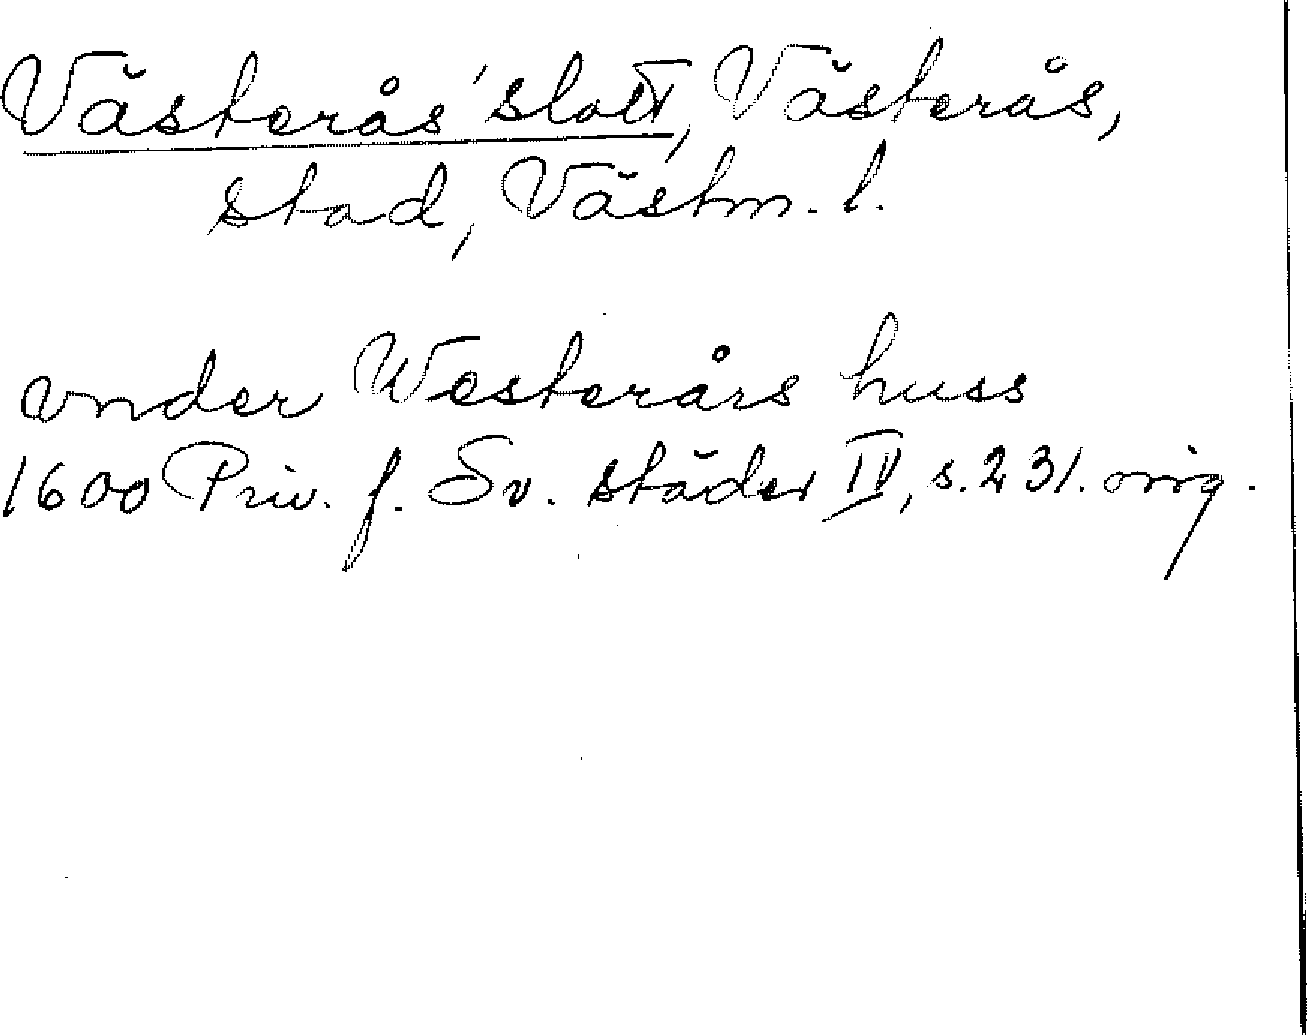 Västerås' slott, Västerås,
stad, Västm. l.
vnder Westerårs huss
1600 Priv. f. Sv. städer IV, s. 231. orig.